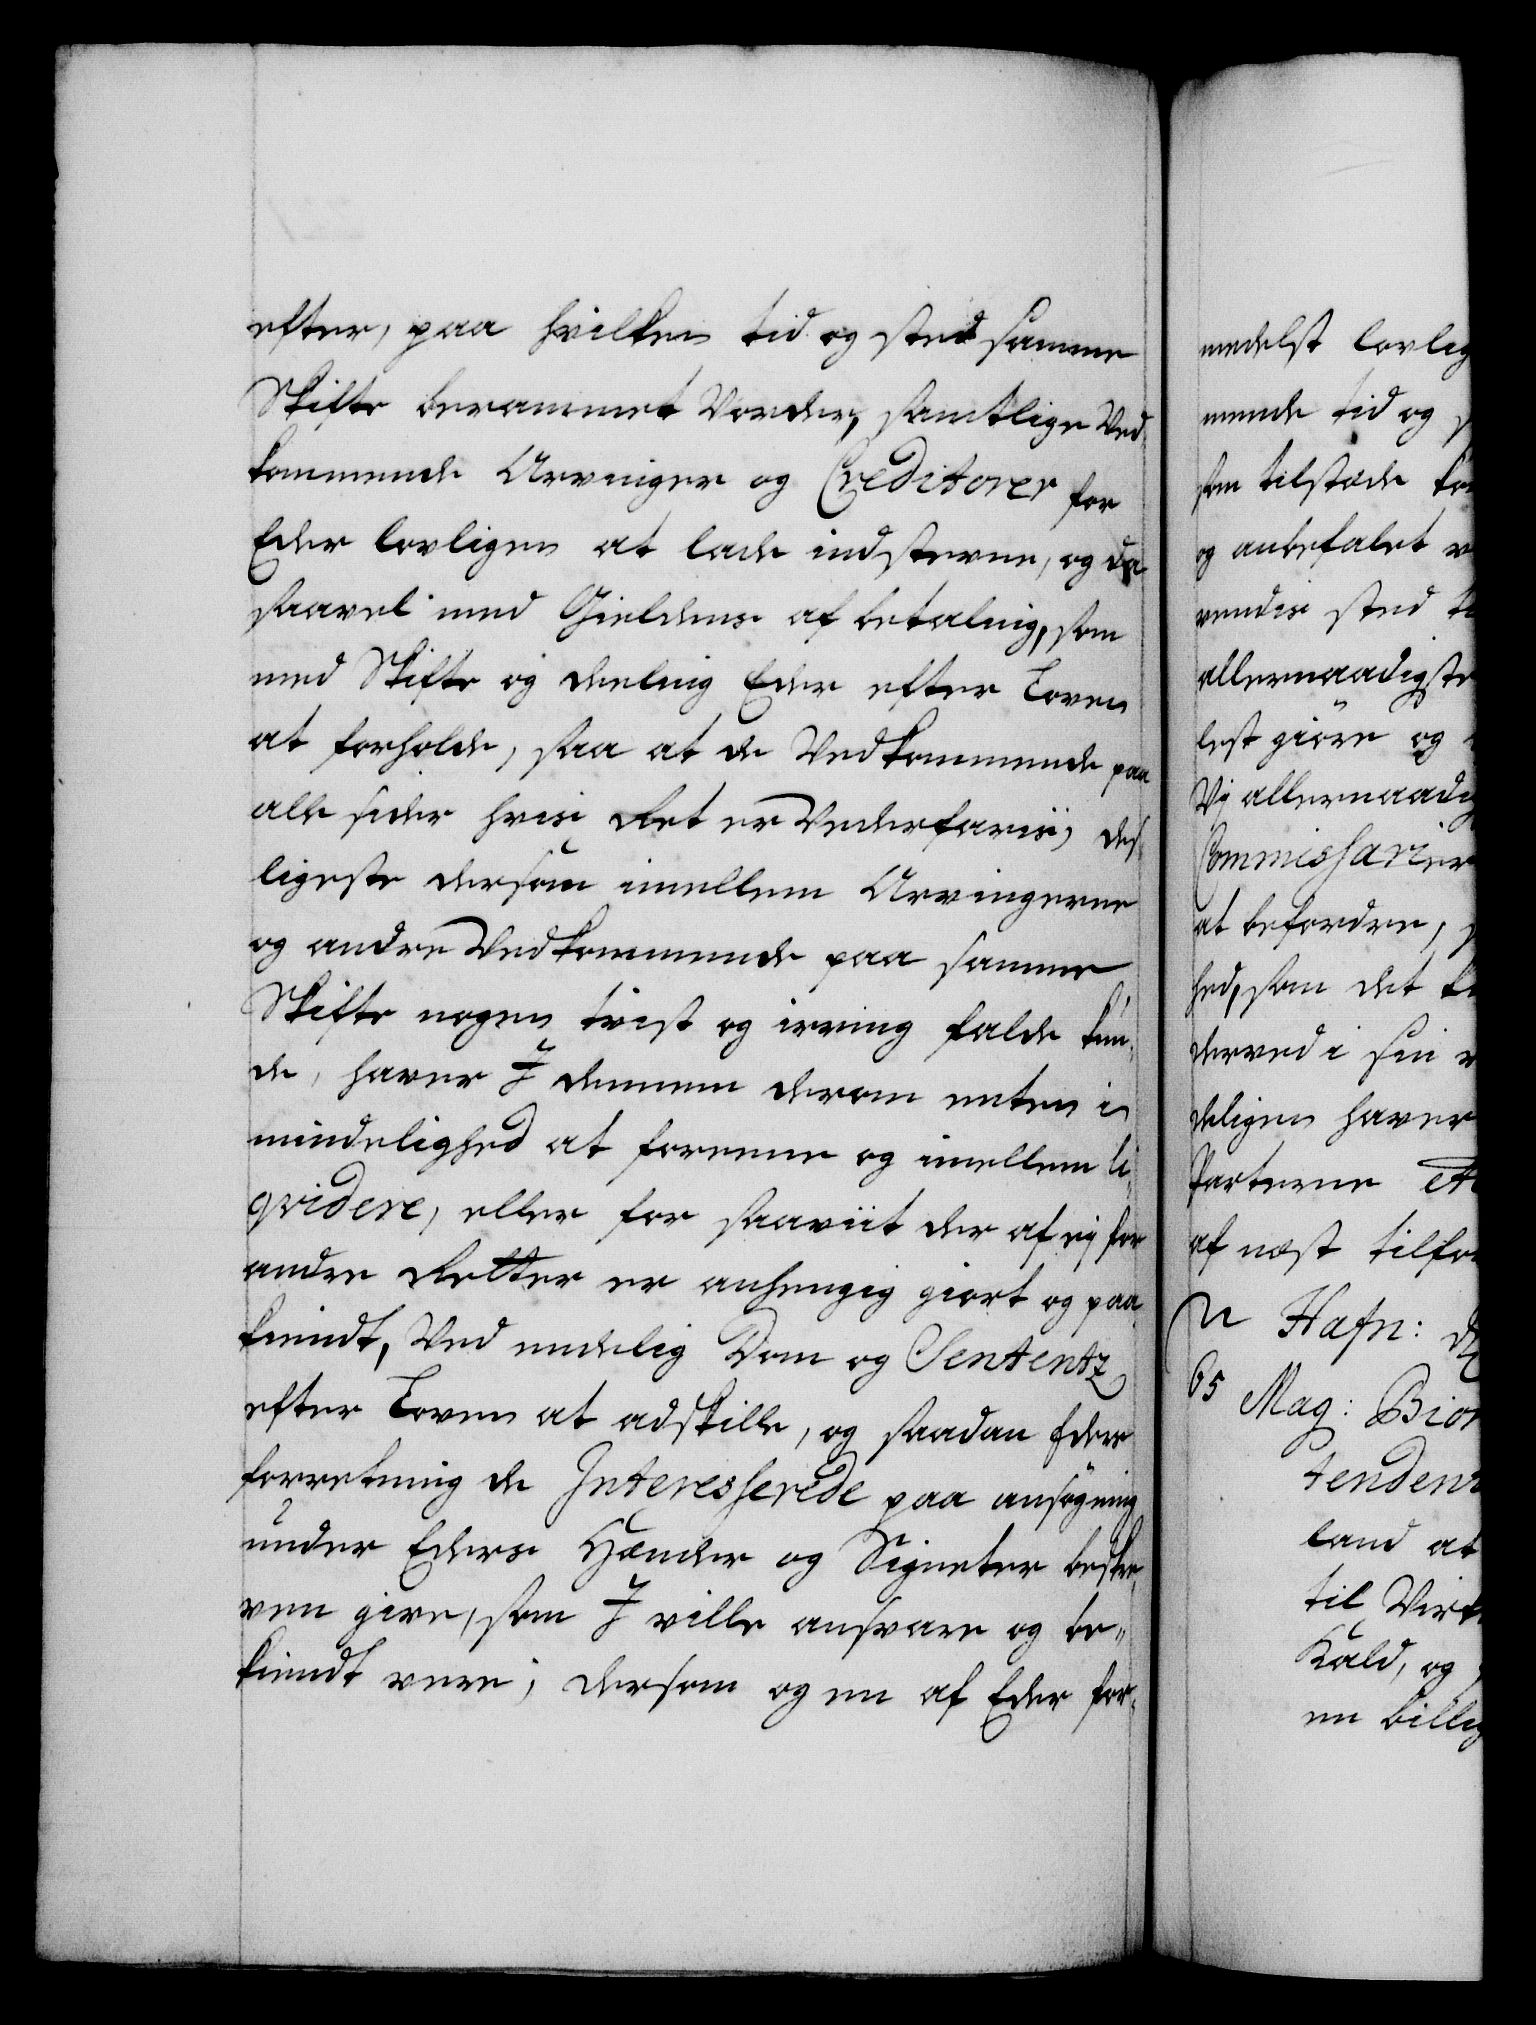 efter, paa hvilken tid og sted samme
Skifte berammet Vorder, samtlige Ved-
kommende Arvinger og Creditorer for
Eder lovligen at lade indstevne, og da
saavel med Gieldens af betaling, som
med Skifte og deeling Eder efter Loven
at forholde, saa at de Vedkommende paa
alle sider hvis Ret er Vederfaris, des-
ligeste dersom imellem Arvingerne
og andre Vedkommende paa samme
Skifte nogen tvist og irring falde kun-
de, haver I dennem derom enten i
mindelighed at foreene og imellem li-
qvidere, eller for saaviit der af ej for
andre Retter er anhengig giort og paa
kiendt, Ved endelig Dom og Sententz
efter Loven at adskille, og saadan Eders
forretning de Interesserede paa ansøgning
under Eders Hænder og Signeter beskre-
ven give, som I ville ansvare og be-
kiendt vere; dersom og een af Eder for-
medelst lovlig
mende tid og
som tilstæde
og anbefalet
vendis sted
allernaadigste
lest giöre og
Vi allernaadig
Commissarier
at befordre,
hed, som det
derved i sin
deligen haver
Parterne
af nest tilfor
Hafn:
65 Mag: Bior
tendent
land at
til Virk
Kald, og
en billig